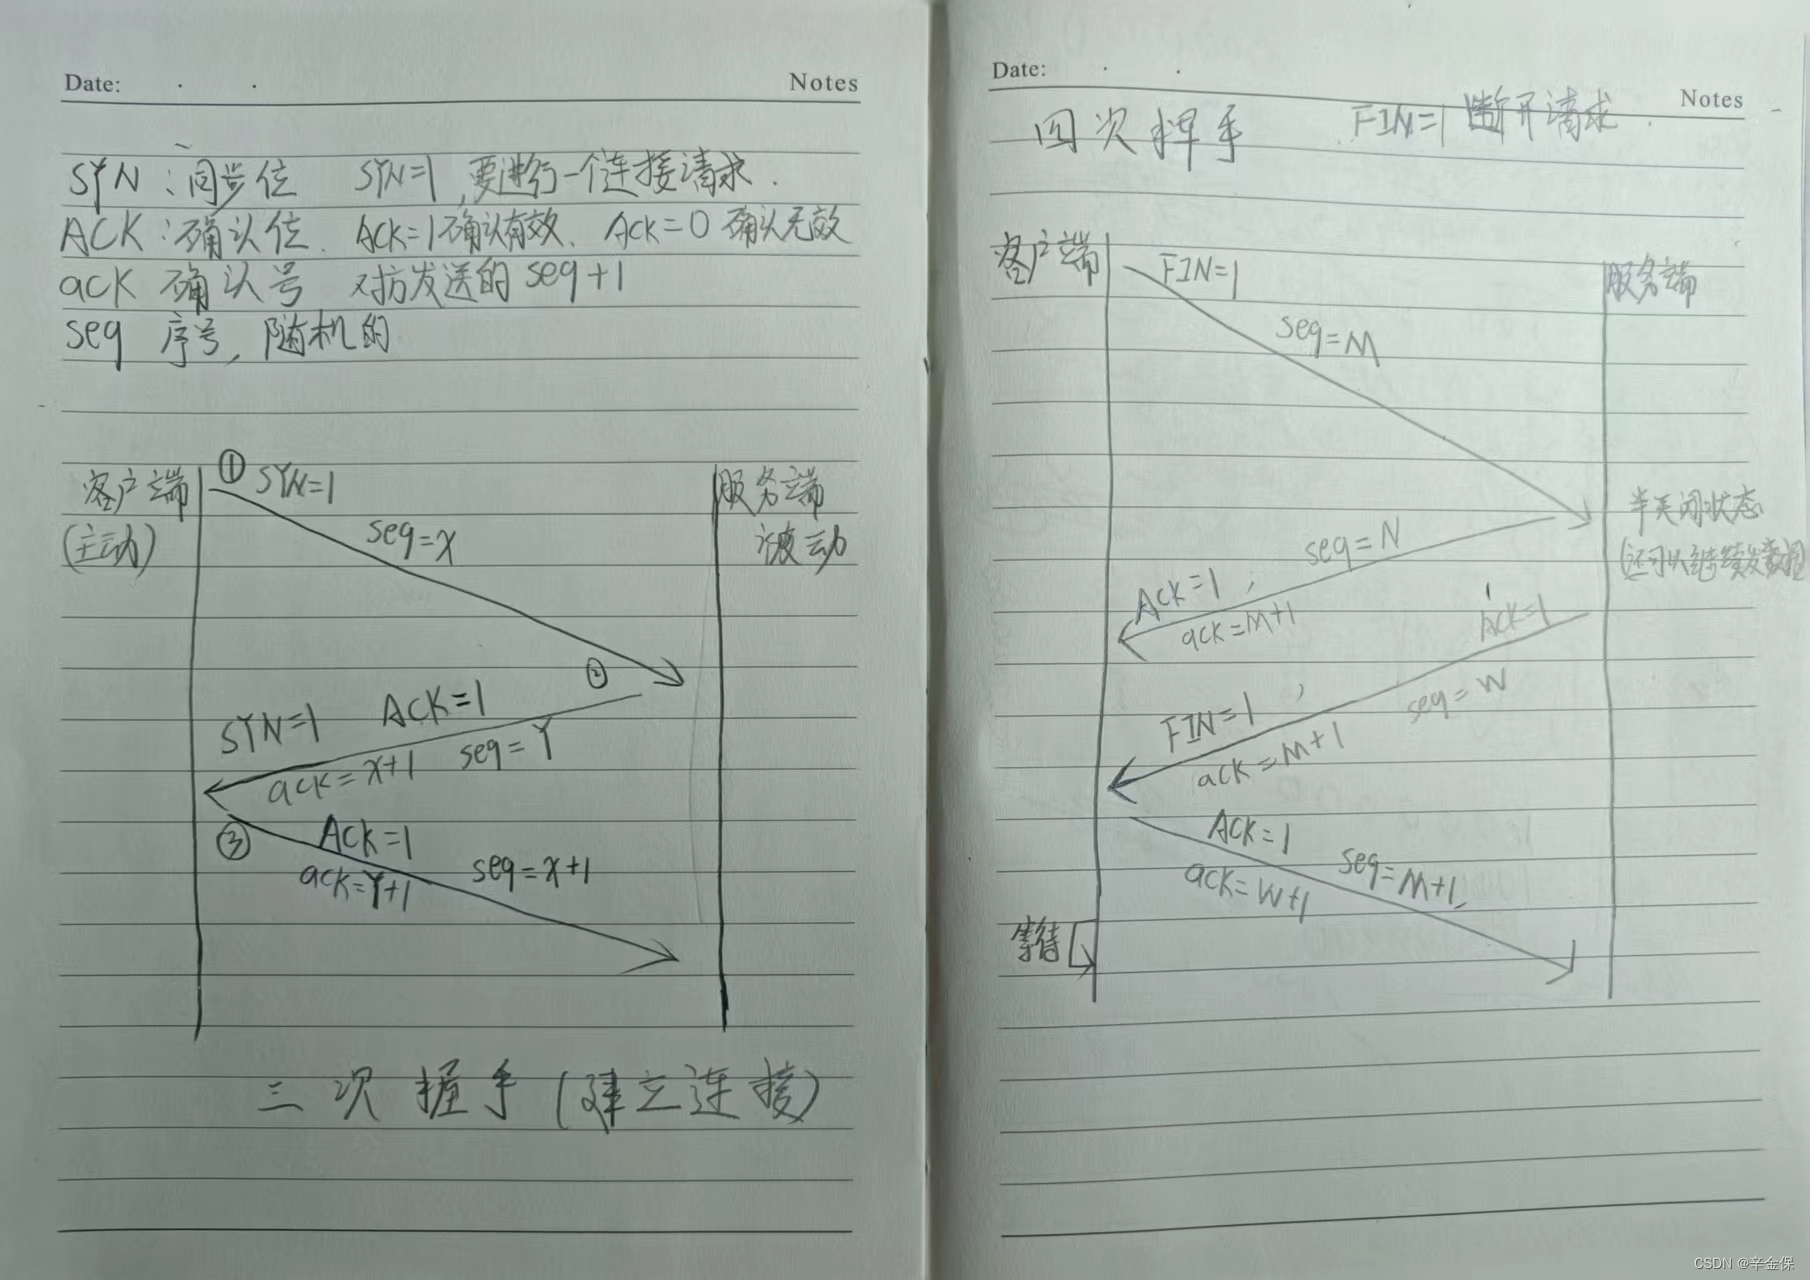 Date: . .
Notes
SYN：同步位 SYN=1，要进行一个连接请求.
ACK：确认位. ACK=1确认有效、ACK=0 确认无效
ack 确认号 对方发送的 seq+1
seq 序号，随机的
① SYN=1
客户端
服务端
(主动)
seq=x
被动
②
SYN=1 ACK=1
ack=x+1 seq=Y
③ ACK=1
ack=Y+1 seq=x+1
三次握手(建立连接)
Date: . .
Notes
四次挥手 FIN=1 断开请求.
客户端 FIN=1
服务端
seq=M
半关闭状态
seq=N
(还可以继续发数据
ACK=1，
ack=M+1
ACK=1
FIN=1，
seq=W
ack=M+1
ACK=1
ack=W+1 seq=M+1
等待
CSDN @辛金保